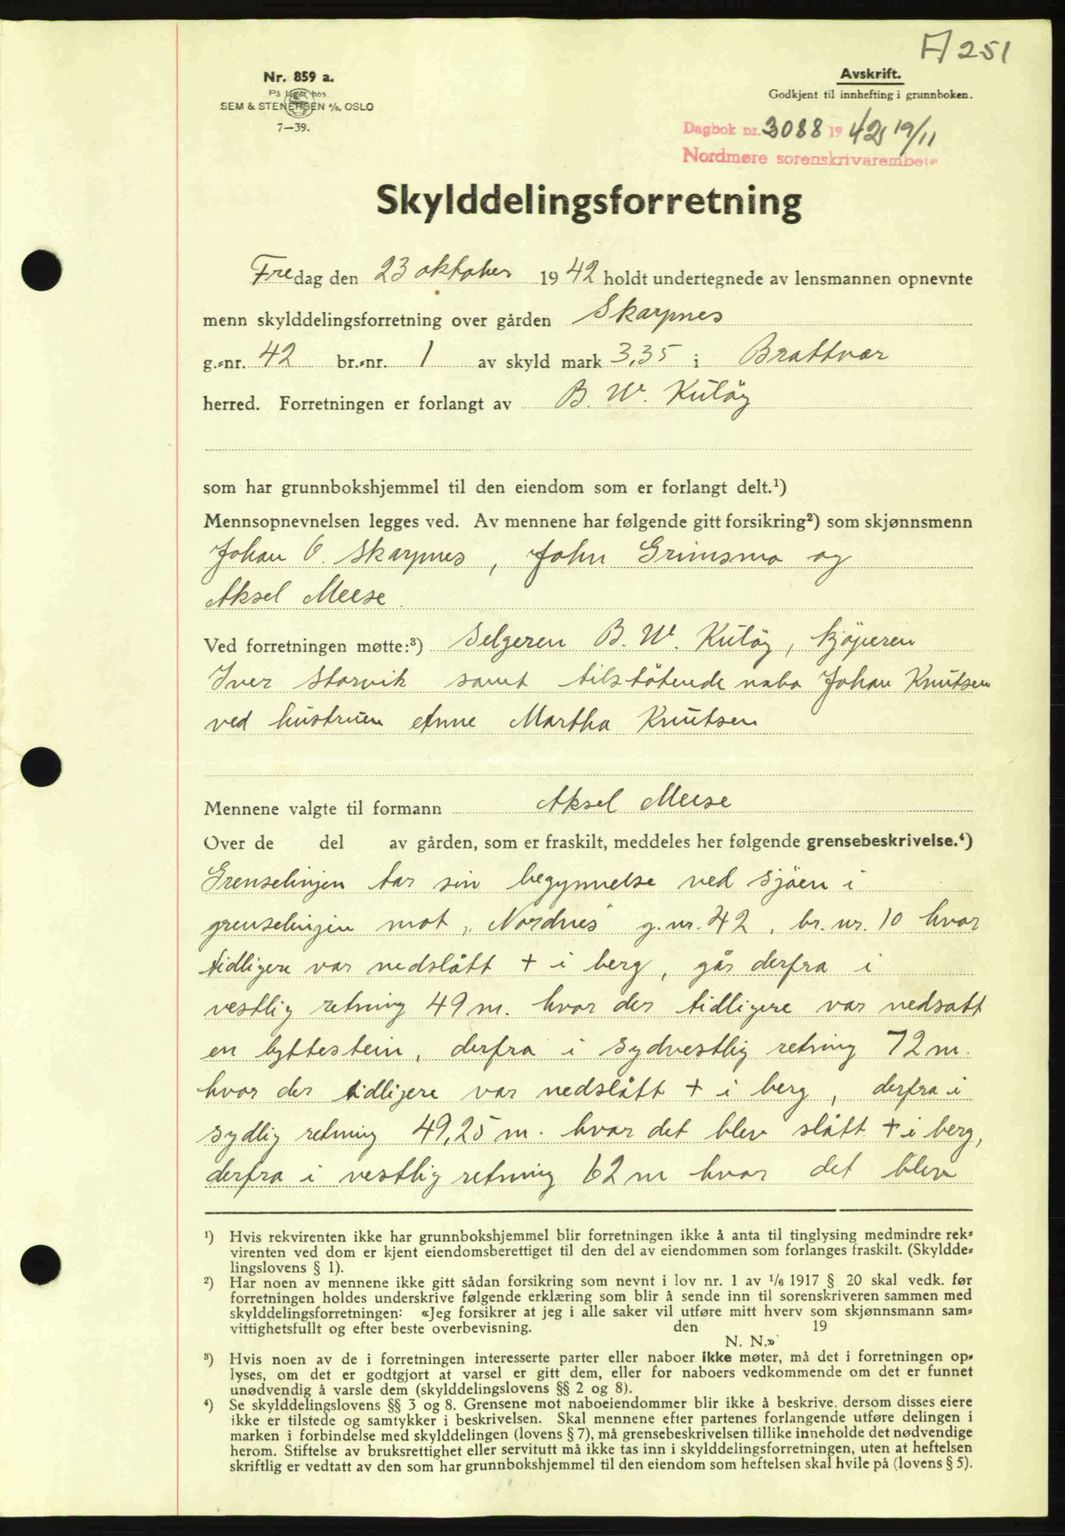 A 251
Nr. 859 a.
På lager hos
SEM & STENERSEN A/S, OSLO
7—39.
Avskrift.
Godkjent til innhefting i grunnboken.
Dagbok nr. 3088 1942 19/11
Nordmøre sorenskrivarembete
Skylddelingsforretning
Fredag den 23 oktober 1942 holdt undertegnede av lensmannen opnevnte
menn skylddelingsforretning over gården Skarpnes
g.-nr. 42 br.-nr. 1 av skyld mark 3,35 i Brattvær
herred. Forretningen er forlangt av B. W. Kuløy
som har grunnbokshjemmel til den eiendom som er forlangt delt.¹)
Mennsopnevnelsen legges ved. Av mennene har følgende gitt forsikring²) som skjønnsmenn
Johan O. Skarpnes, John Grimsmo og
Aksel Meese.
Ved forretningen møtte:³) Selgeren B. W. Kuløy, kjøperen
Iver Storvik samt tilstøtende nabo Johan Knutsen
ved hustruen Anne Martha Knutsen
Mennene valgte til formann Aksel Meese
Over de del av gården, som er fraskilt, meddeles her følgende grensebeskrivelse.⁴)
Grenselinjen tar sin begynnelse ved sjøen i
grenselinjen mot „Nordnes“ g.nr. 42, br. nr. 10 hvor
tidligere var nedslått + i berg, går derfra i
vestlig retning 49 m. hvor der tidligere var nedsatt
en byttestein, derfra i sydvestlig retning 72 m.
hvor der tidligere var nedslått + i berg, derfra i
sydlig retning 49,25 m. hvor det blev slått + i berg,
derfra i vestlig retning 62 m hvor det blev
¹) Hvis rekvirenten ikke har grunnbokshjemmel blir forretningen ikke å anta til tinglysing medmindre rek-
virenten ved dom er kjent eiendomsberettiget til den del av eiendommen som forlanges fraskilt. (Skyldde-
lingslovens § 1).
²) Har noen av mennene ikke gitt sådan forsikring som nevnt i lov nr. 1 av 1/6 1917 § 20 skal vedk. før
forretningen holdes underskrive følgende erklæring som blir å sende inn til sorenskriveren sammen med
skylddelingsforretningen: «Jeg forsikrer at jeg i alle saker vil utføre mitt hverv som skjønnsmann sam-
vittighetsfullt og efter beste overbevisning. den 19
N. N.»
³) Hvis noen av de i forretningen interesserte parter eller naboer ikke møter, må det i forretningen op-
lyses, om det er godtgjort at varsel er gitt dem, eller for naboers vedkommende om det er funnet
unødvendig å varsle dem (skylddelingslovens §§ 2 og 8).
⁴) Se skylddelingslovens §§ 3 og 8. Grensene mot naboeiendommer blir ikke å beskrive, dersom disses eiere
ikke er tilstede og samtykker i beskrivelsen. Skal mennene efter partenes forlangende utføre delingen i
marken i forbindelse med skylddelingen (lovens § 7), må grensebeskrivelsen tillike inneholde det nødvendige
herom. Stiftelse av bruksrettighet eller servitutt må ikke tas inn i skylddelingsforretningen, uten at heftelsen
skriftlig er vedtatt av den som har grunnbokshjemmel til den eiendom som heftelsen skal hvile på (lovens § 5).